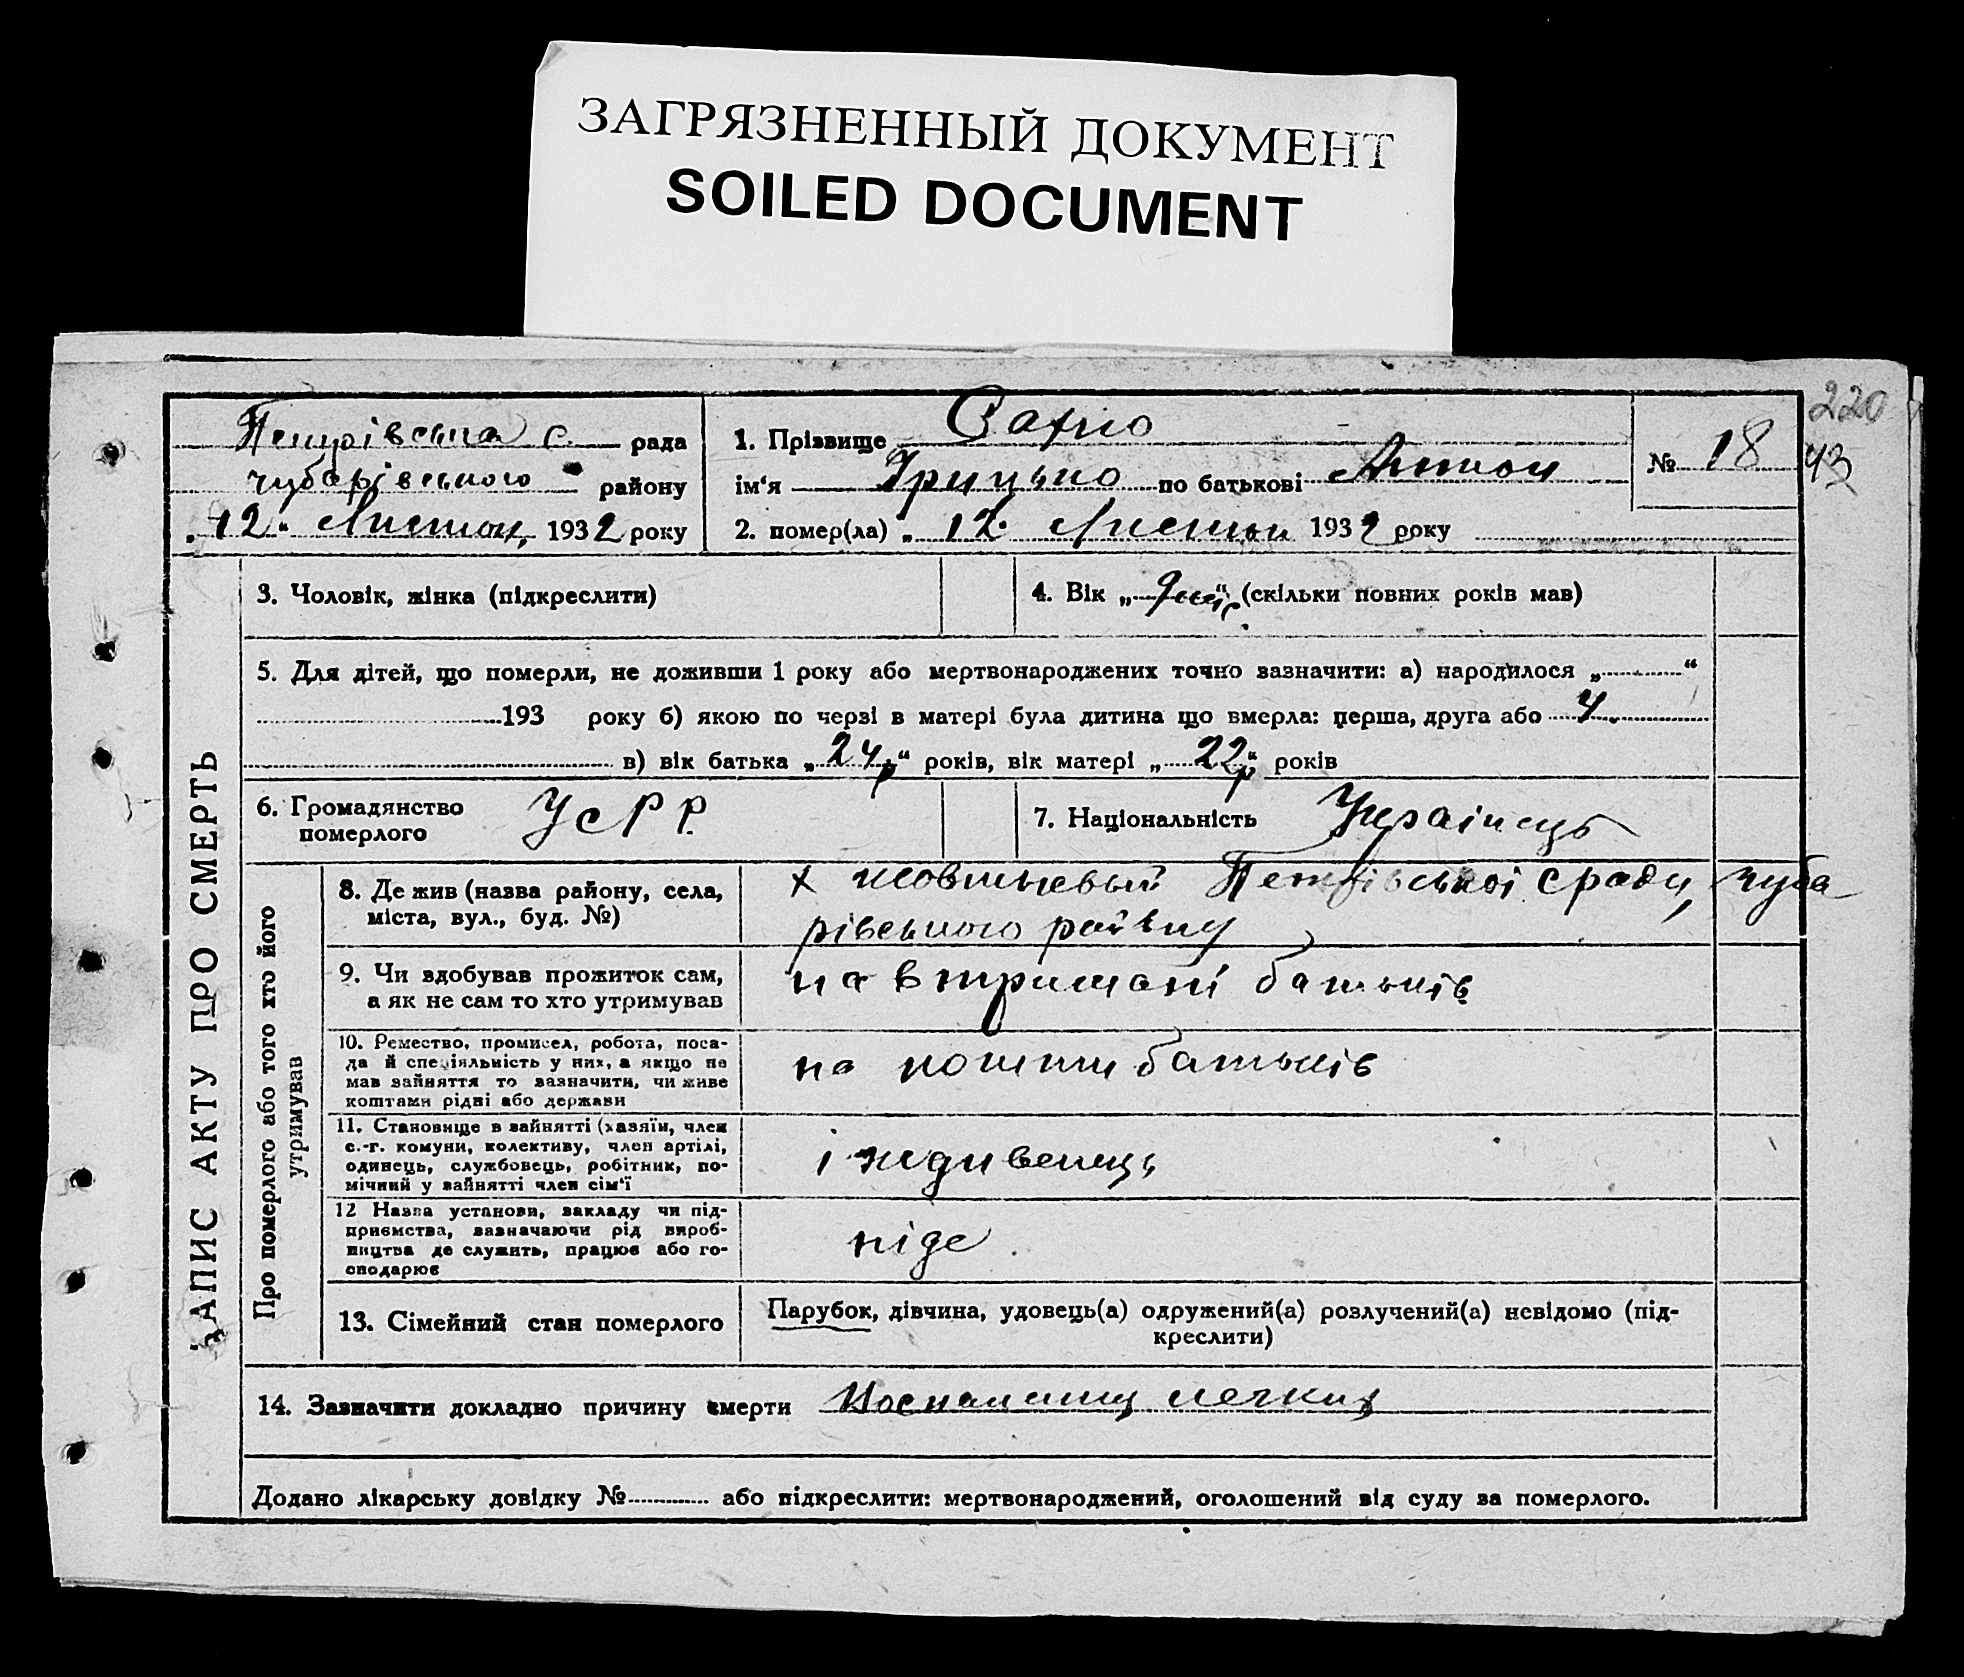 ЗАГРЯЗНЕННЫЙ ДОКУМЕНТ
SOILED DOCUMENT
220
43
Петрівська с. рада
чубарівського району
„12“ Листоп, 1932 року
1. Прізвище
ім‘я Грицько по батькові Антон
2. помер(ла) „12“ Листоп 1932 року
№ 18
ЗАПИС АКТУ ПРО СМЕРТЬ
3. Чоловік, жінка (підкреслити)
4. Вік „ “ (скільки повних років мав)
5. Для дітей, що померли, не доживши 1 року або мертвонароджених точно зазначити: а) народилося „ “
193 року б) якою по черзі в матері була дитина що вмерла: перша, друга або 4.
в) вік батька „24р“ років, вік матері „22р“ років
6. Громадянство
померлого
УСРР
7. Національність Українець
Про померлого або того хто його
утримував
8. Де жив (назва району, села,
міста, вул., буд. №)
х жовтневый Петрівської с ради, чуба
рівського району
9. Чи здобував прожиток сам,
а як не сам то хто утримував
на втримані батьків
10. Ремество, промисел, робота, поса-
да й спеціяльність у них, а якщо не
мав зайняття то зазначити, чи живе
коштами рідні або держави
на кошти батьків
11. Становище в зайнятті (хазяїн, член
с.-г. комуни, колективу, член артілі,
одинець, службовець, робітник, по-
мічний у зайнятті член сім‘ї
іждивенець
12 Назва установи, закладу чи під-
приємства, зазначаючи рід вироб-
ництва де служить, працює або го-
сподарює
ніде
13. Сімейний стан померлого
Парубок, дівчина, удовець(а) одружений(а) розлучений(а) невідомо (під-
креслити)
14. Зазначити докладно причину смерти легких
Додано лікарську довідку № або підкреслити: мертвонароджений, оголошений від суду за померлого.